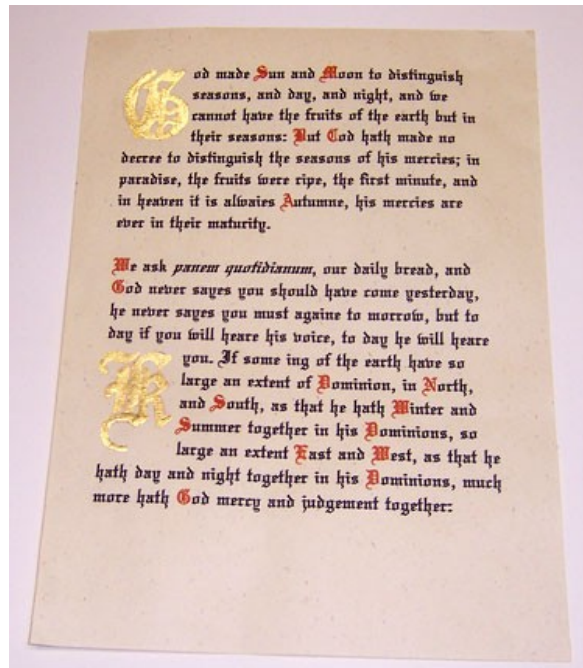 God made Sun and Moon to distinguish
seasons, and day, and night, and we
cannot have the fruits of the earth but in
their seasons: But God hath made no
decree to distinguish the seasons of his mercies; in
paradise, the fruits were ripe, the first minute, and
in heaven it is alwaies Autumne, his mercies are
ever in their maturity.
We ask panem quotidianum, our daily bread, and
God never sayes you should have come yesterday,
he never sayes you must againe to morrow, but to
day if you will heare his voice, to day he will heare
K
you. If some ing of the earth have so
large an extent of Dominion, in North,
and South, as that he hath Winter and
Summer together in his Dominions, so
large an extent East and West, as that he
hath day and night together in his Dominions, much
more hath God mercy and judgement together: